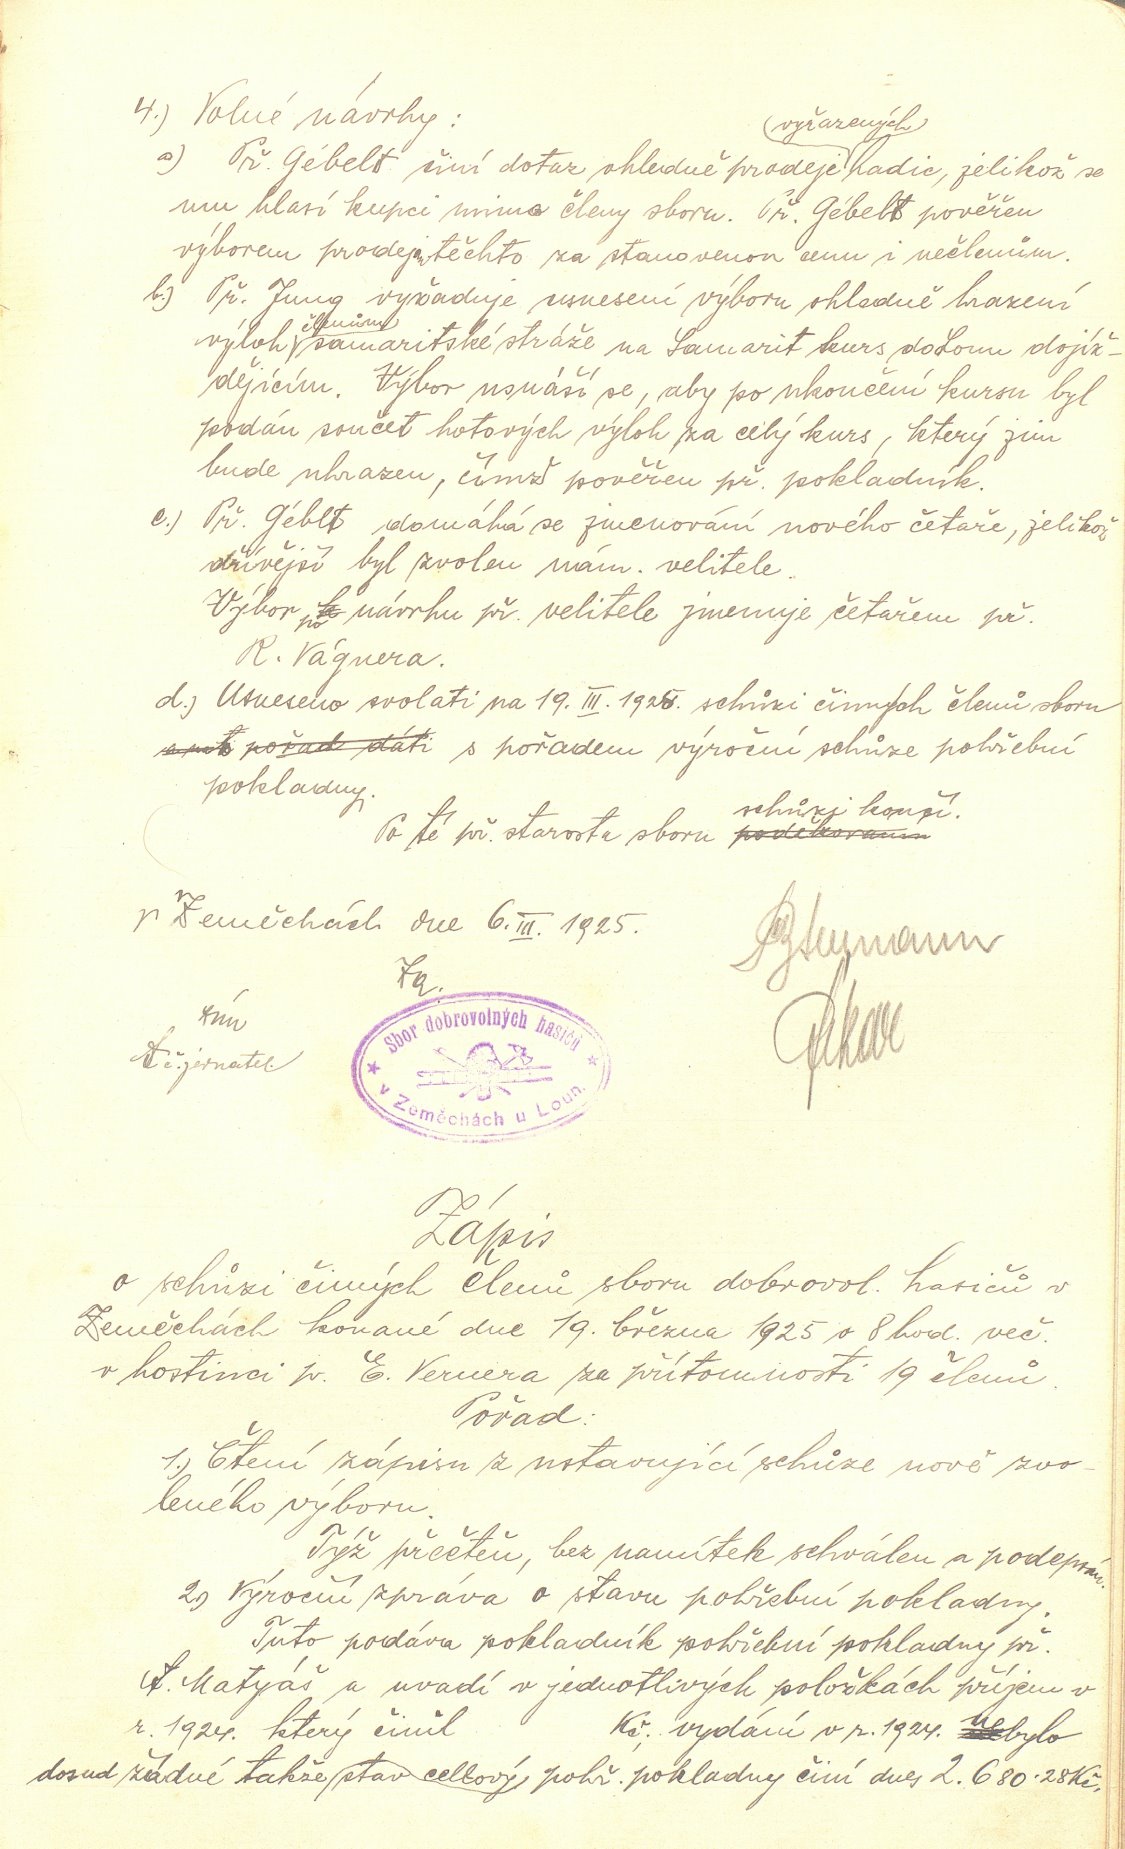 4.) Volné návrhy:
(vyřazených)
a) Př. Gébelt činí dotaz ohledně prodeje hadic, jelikož se
mu hlasí kupci mimo členy sboru. Př. Gébelt pověřen
výborem prodejem těchto za stanovenou cenu i nečlenům.
b.) Př. Jung vyžaduje usnesení výboru ohledně hrazení
členům
výloh samaritské stráže na Samarit kurs do Loun dojíž-
dějícím. Výbor usnáší se, aby po ukončení kursu byl
podán součet hotových výloh za celý kurs, který jim
bude uhrazen, čímž pověřen př. pokladník.
c.) Př. Géblt domáhá se jmenování nového četaře, jelikož
dřívější byl zvolen nám. velitele.
Výbor po návrhu př. velitele jmenuje četařem př.
R. Vágnera.
d.) Usneseno svolati na 19. III. 1925. schůzi činných členů sboru
pořad dáti s pořadem výroční schůze pohřební
pokladny.
schůzi končí.
Po té př. starosta sboru poděkoval
V Zeměchách dne 6. III. 1925.
t. č. jednatel
Sbor dobrovolných hasičů
v Zeměchách u Loun.
Zápis
o schůzi činných členů sboru dobrovol. hasičů v
Zeměchách konané dne 19. března 1925 o 8 hod. več.
v hostinci p. E. Vernera za přítomnosti 19 členů.
Pořad:
1.) Čtení zápisu z ustavující schůze nově zvo-
leného výboru.
Týž přečten, bez namítek schválen a podepsán.
2) Výroční zpráva o stavu pohřební pokladny.
Tuto podáva pokladník pohřební pokladny př.
A. Matyáš a uvadí v jednotlivých položkách příjem v
r. 1924. který činil Kč. vydání v r. 1924. nebylo
dosud žádné takže stav cellový pohř. pokladny činí dnes 2.680.28 Kč.